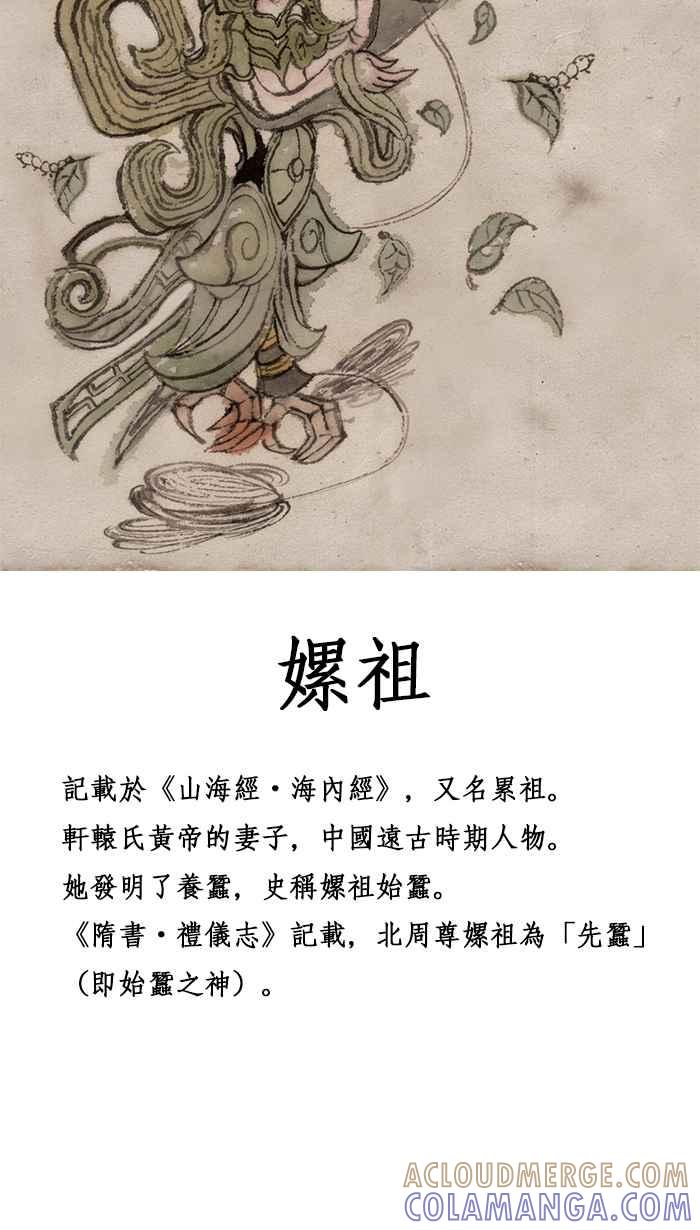 嫘祖
記載於《山海經·海內經》，又名累祖。
軒轅氏黃帝的妻子，中國遠古時期人物。
她發明了養蠶，史稱嫘祖始蠶。
《隋書·禮儀志》記載，北周尊嫘祖為「先蠶」
（即始蠶之神）。
ACLOUDMERGE.COM
COLAMANGA.COM